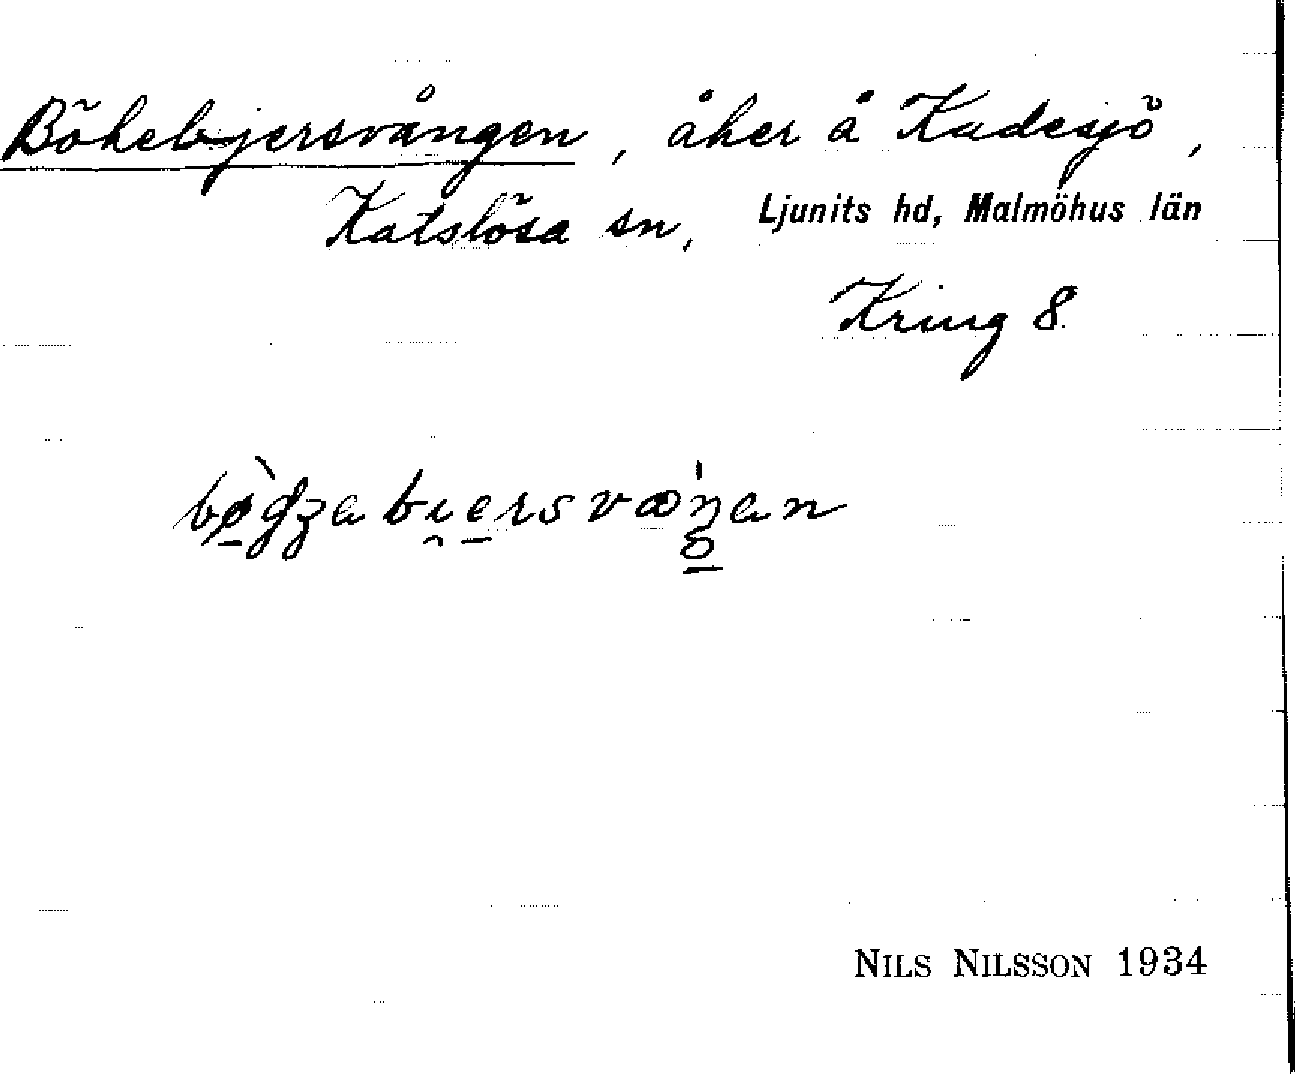 Bökebjersvången, åker å Kadesjö,
Katslösa sn, Ljunits hd, Malmöhus län
Kring 8.
NILS NILSSON 1934